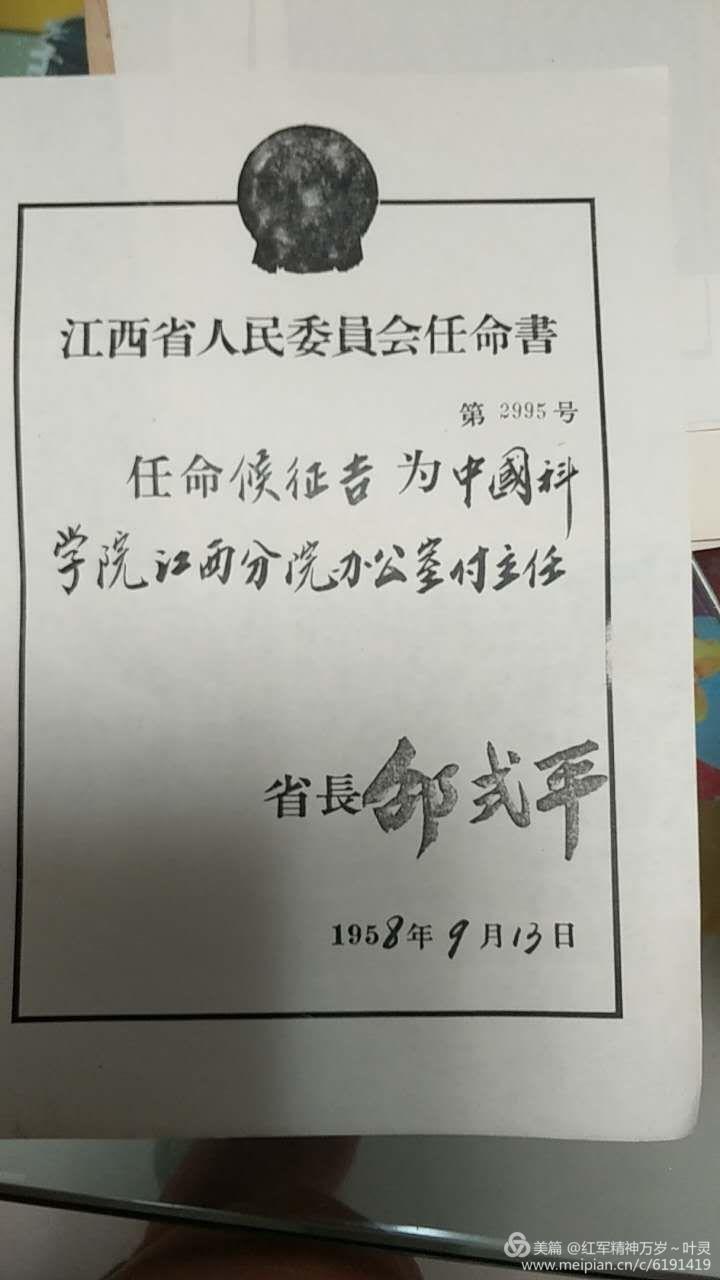 江西省人民委員会任命書
第 2995 号
任命候征吉为中國科
学院江西分院办公室付主任
省長邵式平
1958年9月13日
美篇 @红军精神万岁～叶灵
www.meipian.cn/c/6191419